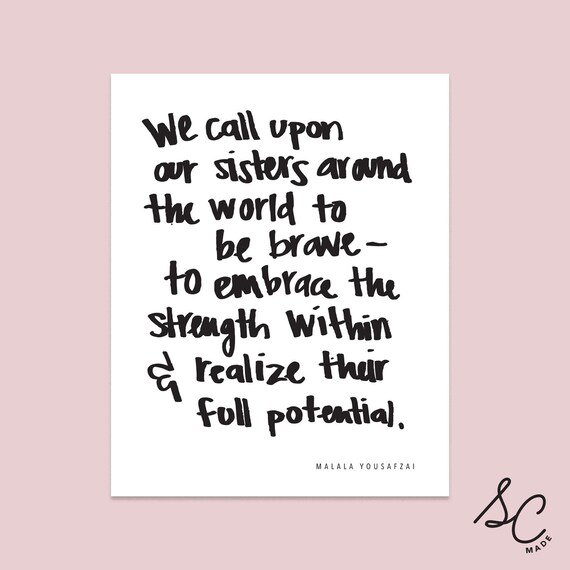 We call upon
our sisters around
the world to
be brave –
to embrace the
strength within
& realize their
full potential.
MALALA YOUSAFZAI
SC
MADE